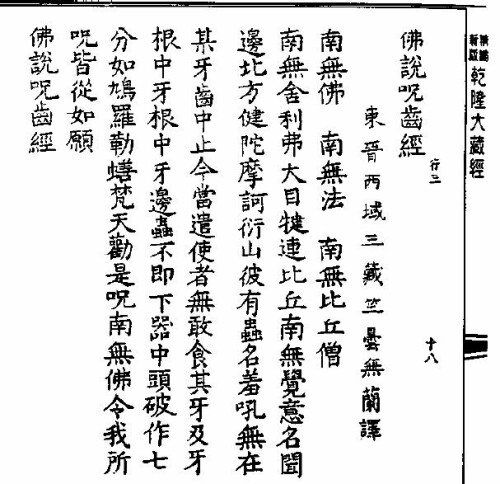 精緻
新版
乾隆大藏經
佛說呪齒經 行三 十八
東晉西域三藏竺曇無蘭譯
南無佛 南無法 南無比丘僧
南無舍利弗大目犍連比丘南無覺意名聞
邊北方健陀摩訶衍山彼有蟲名羞吼無在
某牙齒中止今當遣使者無敢食其牙及牙
根中牙根中牙邊蟲不即下器中頭破作七
分如鳩羅勒蟮梵天勸是呪南無佛令我所
呪皆從如願
佛說呪齒經